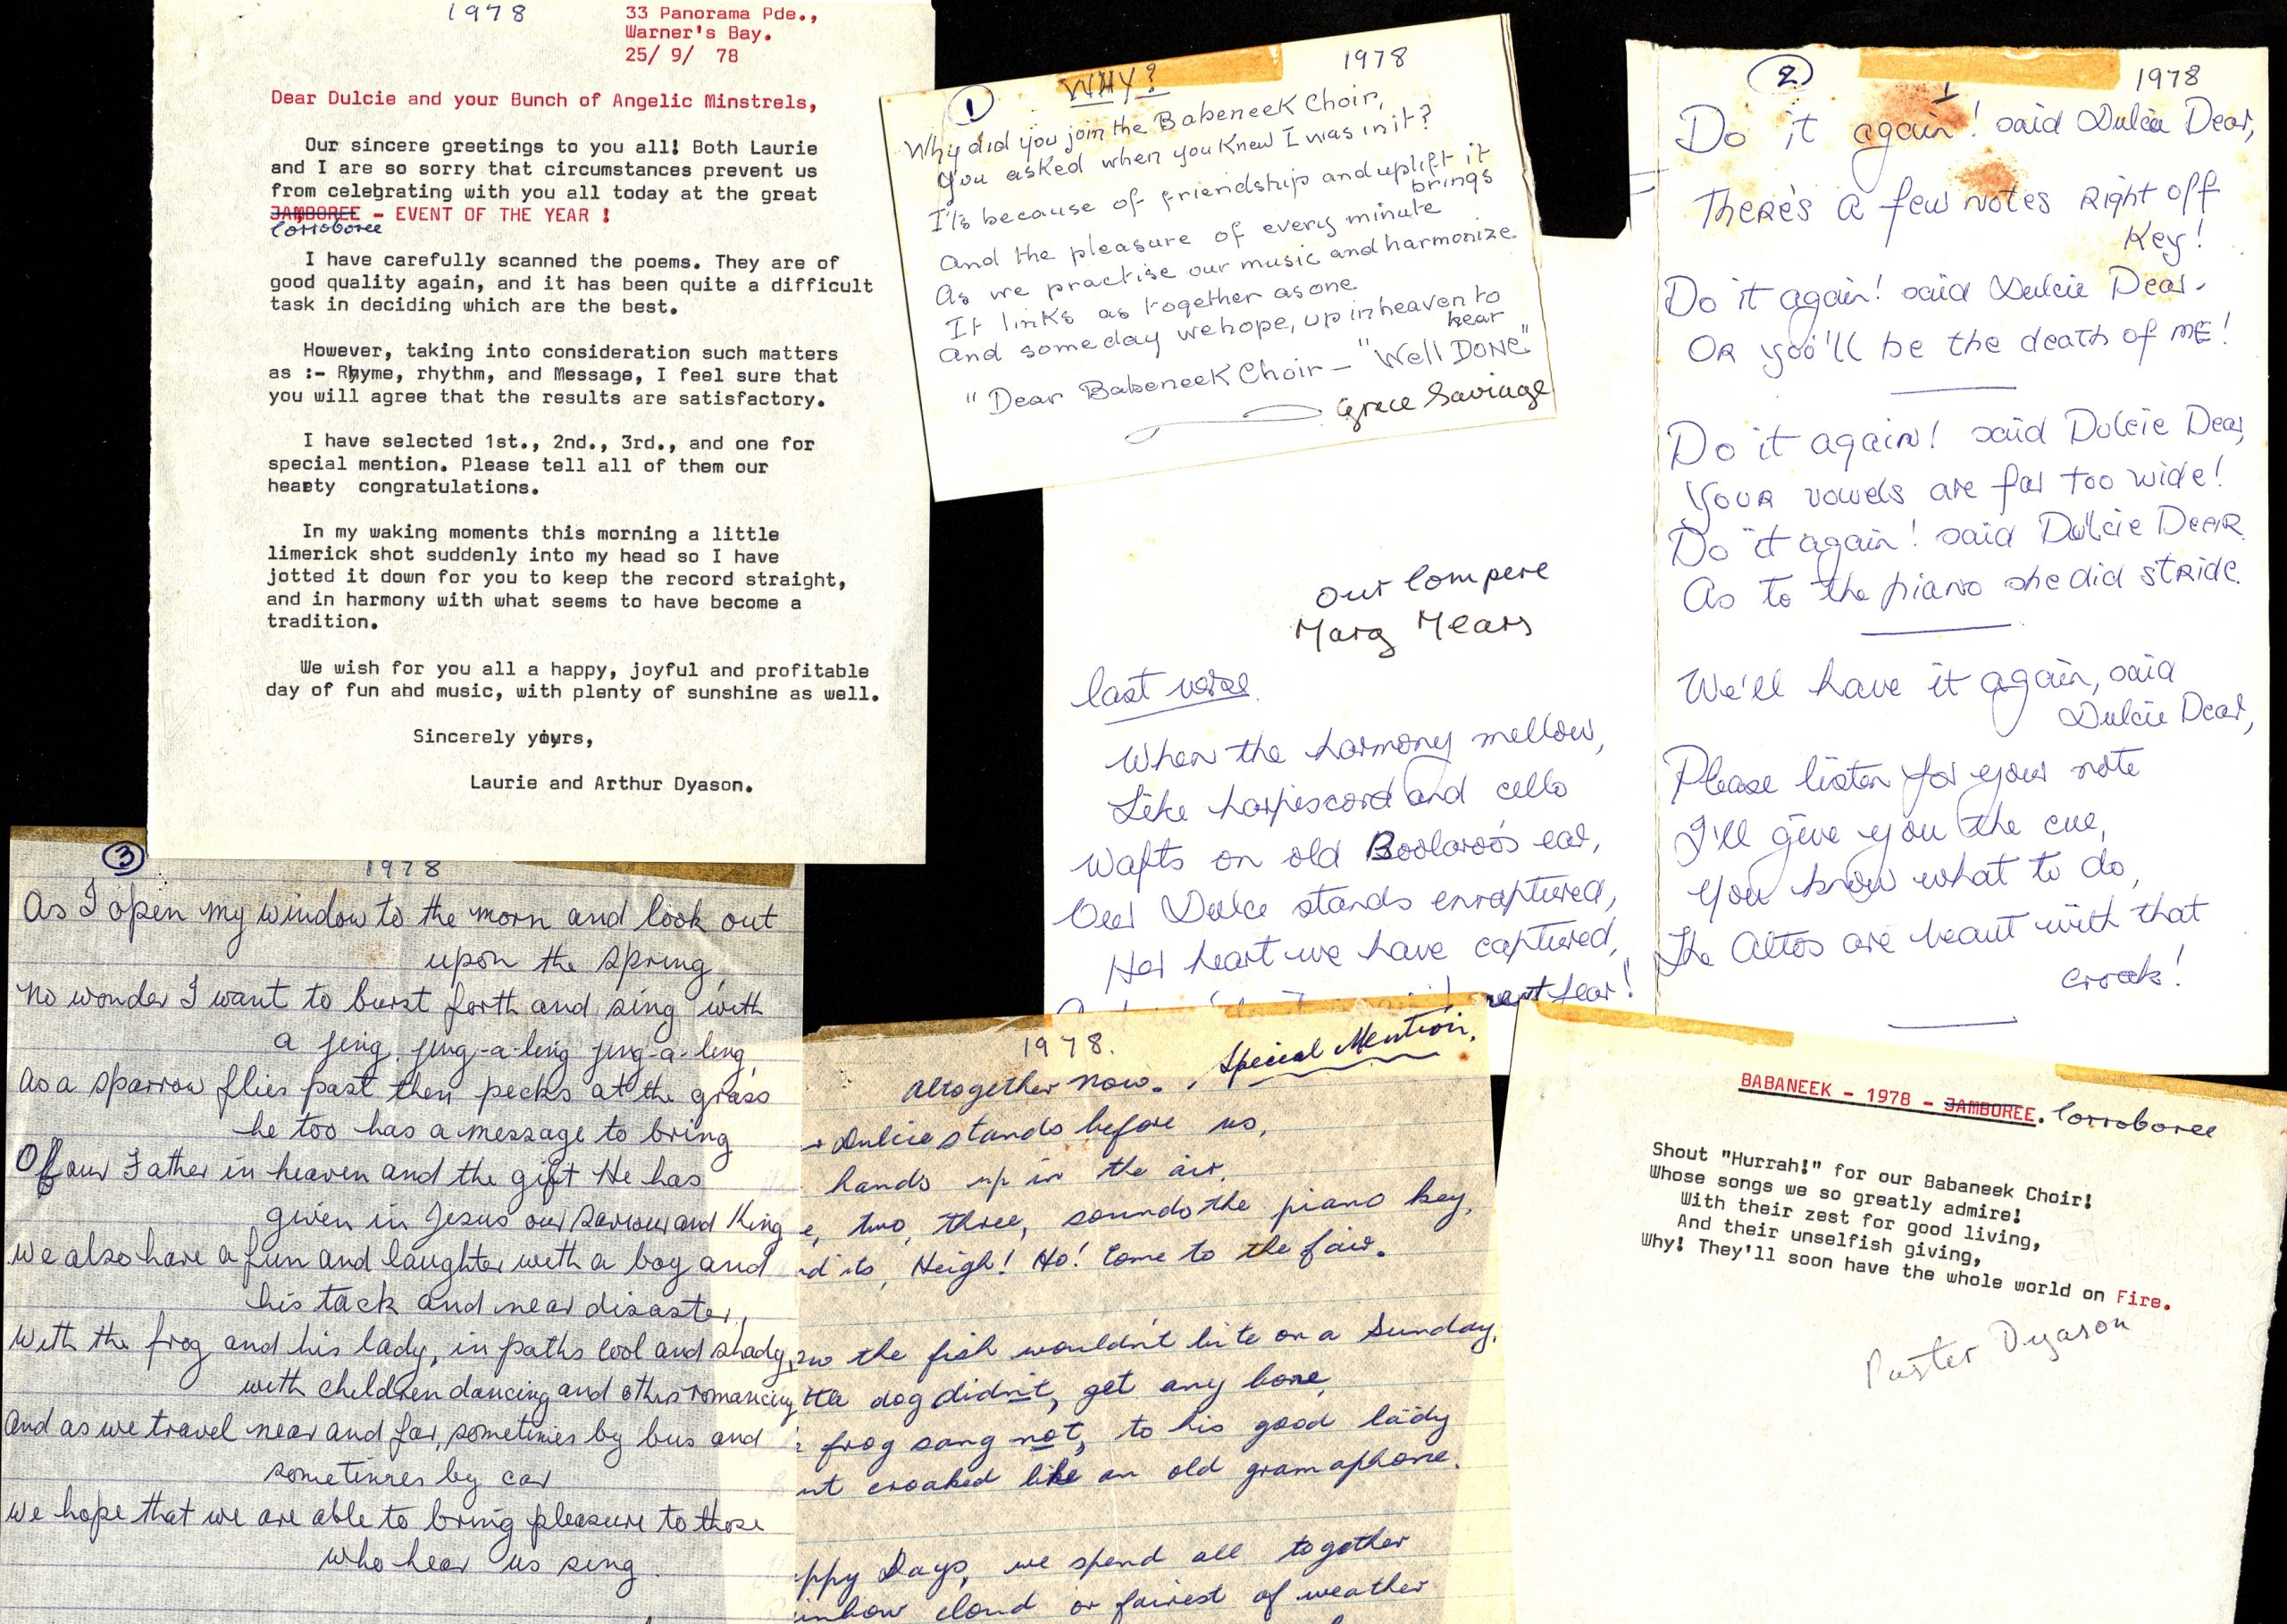 1978
33 Panorama Pde.,
Warner's Bay.
25/ 9/ 78
Dear Dulcie and your Bunch of Angelic Minstrels,
Our sincere greetings to you all! Both Laurie
and I are so sorry that circumstances prevent us
from celebrating with you all today at the great
JAMBOREE - EVENT OF THE YEAR !
Corroboree
I have carefully scanned the poems. They are of
good quality again, and it has been quite a difficult
task in deciding which are the best.
However, taking into consideration such matters
as :- Rhyme, rhythm, and Message, I feel sure that
you will agree that the results are satisfactory.
I have selected 1st., 2nd., 3rd., and one for
special mention. Please tell all of them our
hearty congratulations.
In my waking moments this morning a little
limerick shot suddenly into my head so I have
jotted it down for you to keep the record straight,
and in harmony with what seems to have become a
tradition.
We wish for you all a happy, joyful and profitable
day of fun ahd music, with plenty of sunshine as well.
Sincerely yours,
Laurie and Arthur Dyason.
1 WHY? 1978
Why did you join the Babeneek Choir,
You asked when you knew I was in it?
It's because of friendship and uplift it
brings
And the pleasure of every minute
As we practise our music and harmonize
It links as together as one
And someday we hope, up in heaven to
hear
"Dear Babeneek Choir - "Well DONE"
Grace Saviage
Our Compere
Marg Mears
last verse
When the harmony mellow,
Like harpiscord and cello
Wafts on old Boolaroo's ear,
Our Dulce stands enraptured,
Her heart we have captured,
wept tear!
2 1978
Do it again! said Dulcie Dear,
There's a few notes Right off
Key!
Do it again! said Dulcie Dear.
OR you'll be the death of ME!
Do it again! said Dulcie Dear,
YOUR vowels are far too wide!
Do it again! said Dulcie DEAR
As to the piano she did stride.
We'll have it again, said
Dulcie Dear,
Please listen for your note
I'll give you the cue,
You know what to do,
The Altos are beaut with that
croak!
3 1978
As I open my window to the morn and look out
upon the spring,
No wonder I want to burst forth and sing with
a jing, jing-a-ling jing-a-ling,
As a sparrow flies past then pecks at the grass
he too has a message to bring
Of our Father in heaven and the gift He has
given in Jesus our Saviour and King
We also have a fun and laughter with a boy and
his tack and near disaster,
With the frog and his lady, in paths cool and shady,
with children dancing and others romancing
And as we travel near and far, sometimes by bus and
sometimes by car
We hope that we are able to bring pleasure to those
who hear us sing.
1978.
Special Mention.
Altogether Now.
Dulcie stands before us,
hands up in the air.
two, three, sounds the piano key,
its, Heigh! Ho! Come to the fair.
the fish wouldn't bite on a Sunday,
dog didn't, get any bone,
frog sang not, to his good lady
croaked like an old gramaphone.
Days, we spend all together
cloud or fairest of weather
BABANEEK - 1978 - JAMBOREE. Corroboree
Shout "Hurrah!" for our Babaneek Choir!
Whose songs we so greatly admire!
With their zest for good living,
And their unselfish giving,
Why! They'll soon have the whole world on Fire.
Paster Dyason